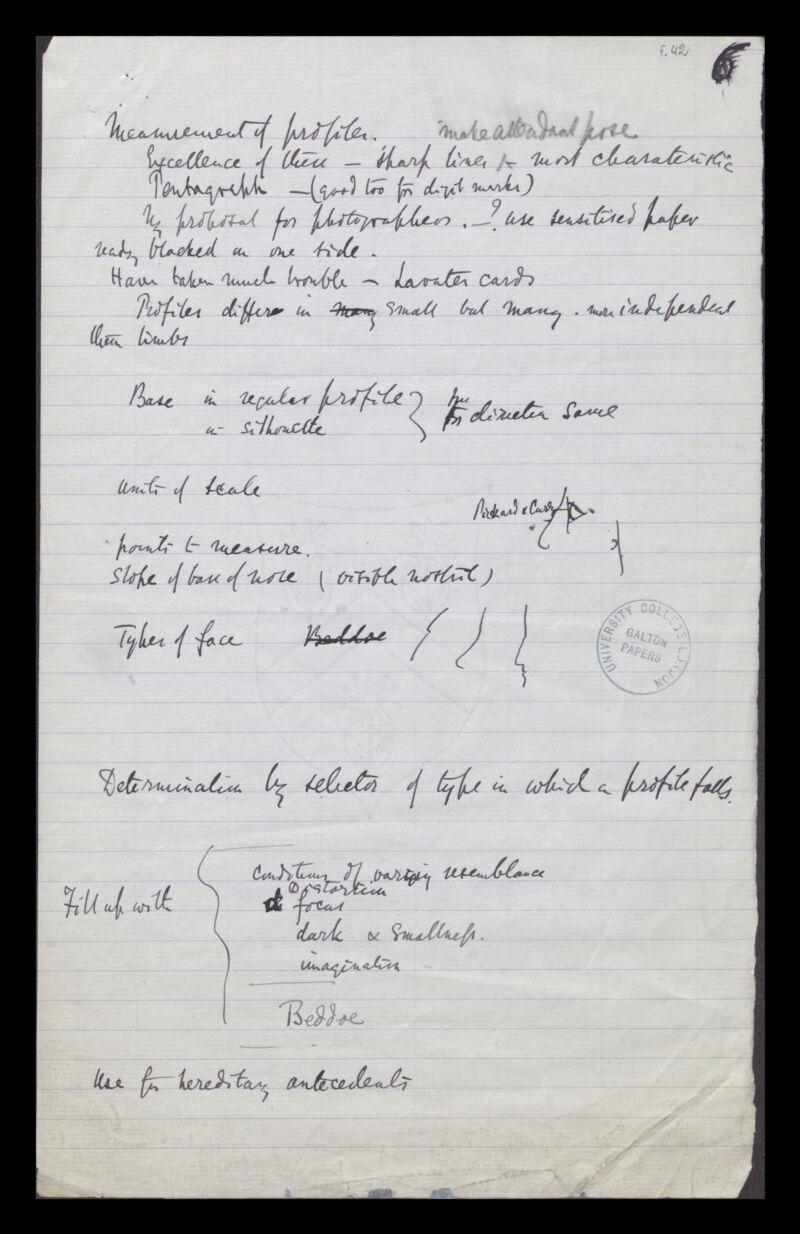 f. 42
6
Measurement of profiles. make attendant pose
Excellence of these – sharp lines & most charateristic
Pentagraph – (good too for digit marks)
My proposal for photographers. – ? use sensitised paper
ready blacked on one side.
Have taken much trouble – Lavater cards
Profiles differ in many small but many . more independent
than limbs
Base in regular profile
in silhouette
for diameter same
units of scale
Pickard & Curry
points to measure.
slope of base of nose ( visible nostril )
Types of face Beddoe
UNIVERSITY COLLEGE LONDON
GALTON PAPERS
Determination by selector of type in which a profile falls.
Fill up with
conditions of varying resemblance
Distortion
focus
dark & smallness.
imagination
Beddoe
Use for hereditary antecedents